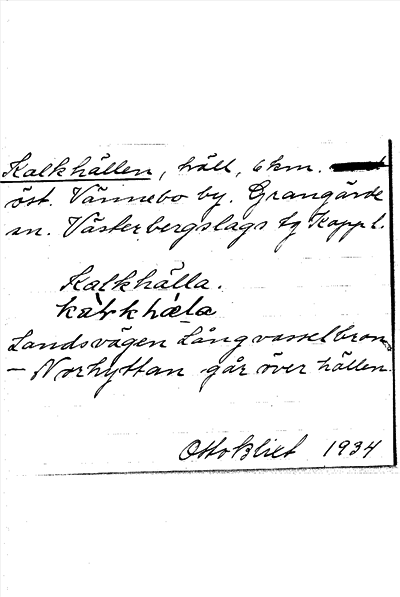 Kalkhällen, häll, 6 km.
öst. Vännebo by. Grangärde
sn. Västerbergslags tg Kopp l.
Kalkhälla.
Landsvägen Långvasselbron
– Norhyttan går över hällen.
Otto Blixt 1934